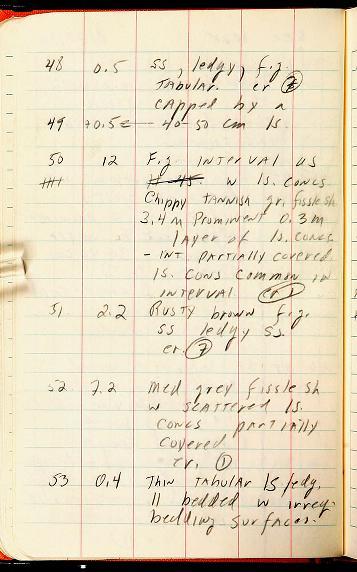 48 0.5 SS, ledgy, f.g.
Tabular. er 7
capped by a
49 40-50 cm ls.
50 12 F.g INTERVAL as
w ls. concs
Chippy TANNish gr. fissle sh
3.4 m Prominent 0.3 m
layer of ls. concs
- INT partially covered
ls. cons common in
interval er 1
51 2.2 Rusty brown f.g.
ss ledgy ss.
er. 7
52 7.2 med grey fissle sh
w scattered ls.
concs partially
covered
er. 1
53 0.4 Thin tabular ls ledg.
11 bedded w irreg.
bedding surfaces.